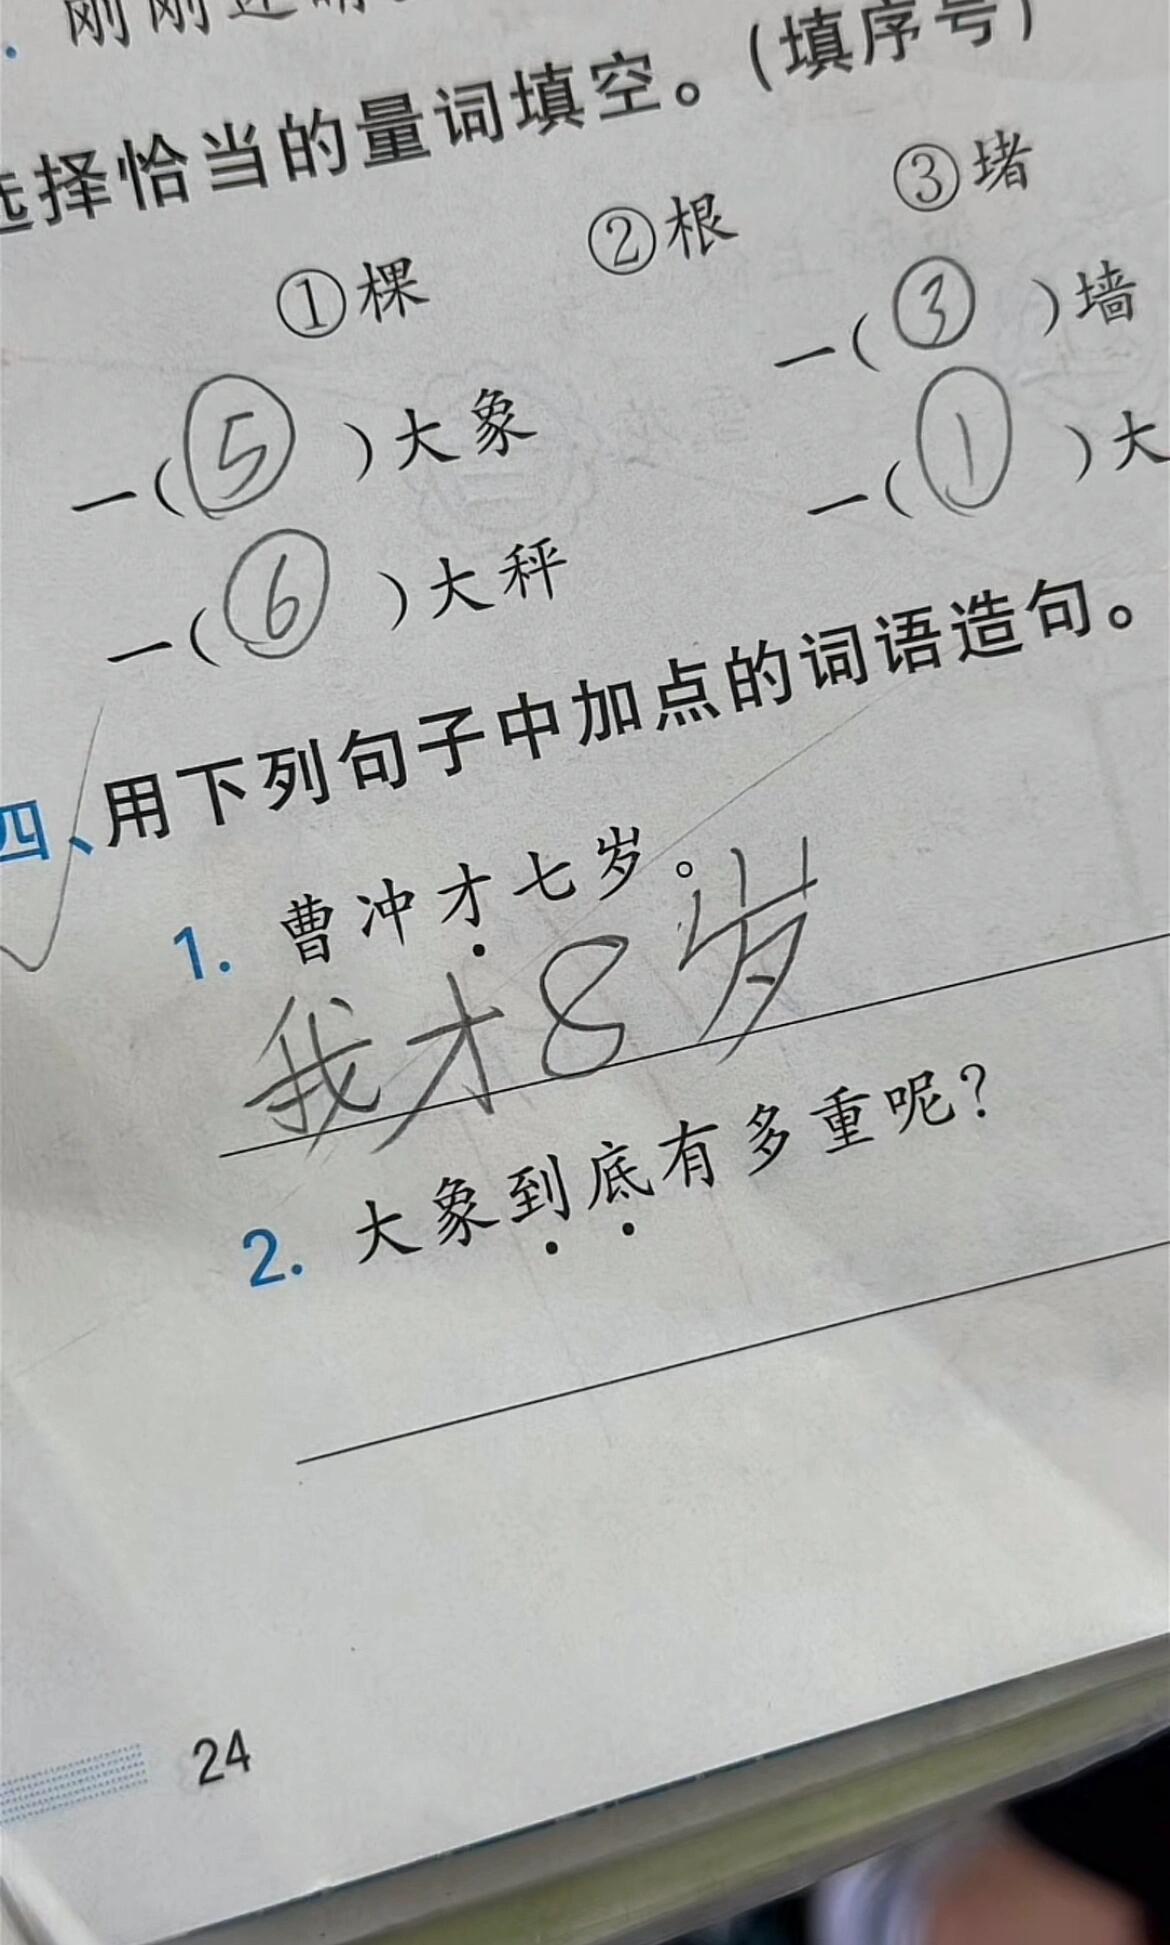 刚刚还
选择恰当的量词填空。(填序号)
①棵 ②根 ③堵
一(⑤)大象 一(③)墙
一(⑥)大秤 一(①)大
四、用下列句子中加点的词语造句。
1. 曹冲才七岁。
我才8岁
2. 大象到底有多重呢?
24